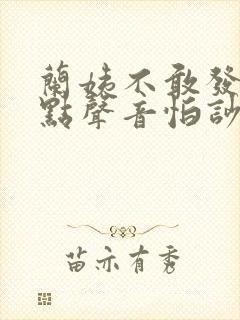 蘭姨不敢發
點聲音怕訬
苗亦有秀